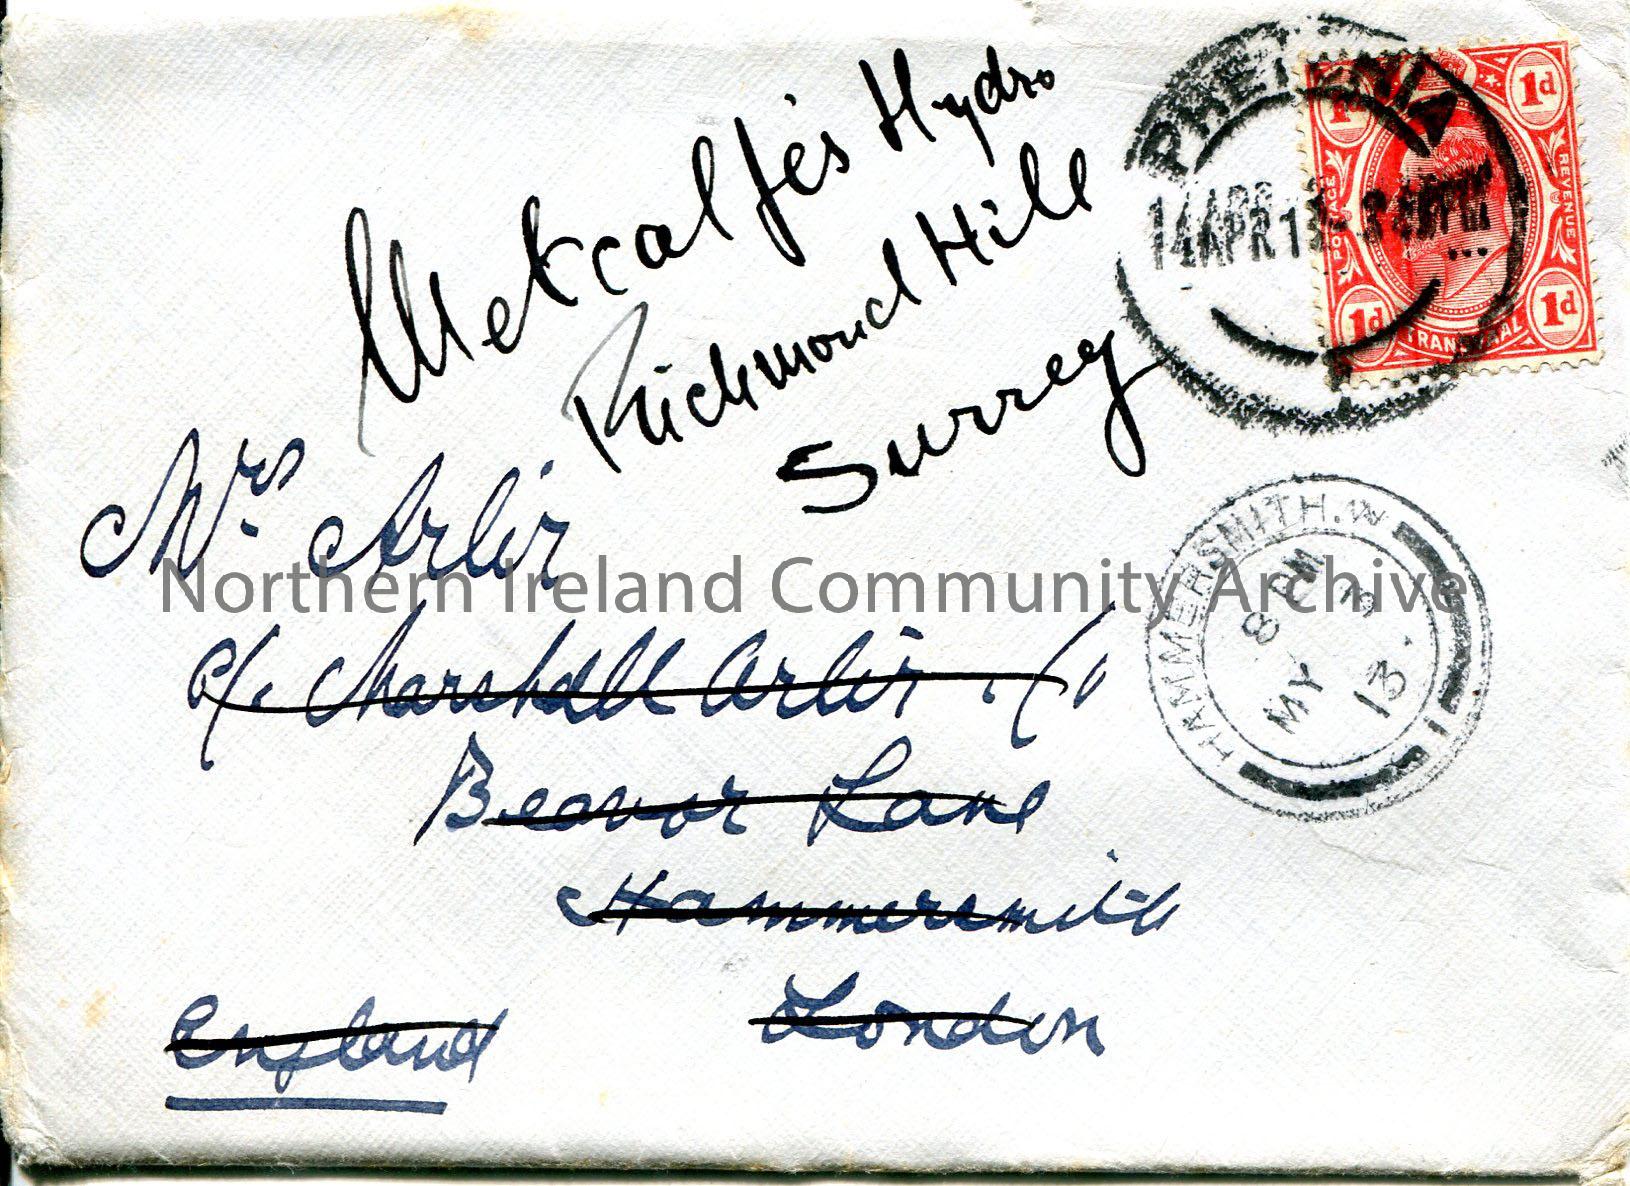 Metcalfe's Hydro
Richmond Hill
Surrey
PRETORIA
14 APR 13 - 3 45 PM
1d 1d
POSTAGE REVENUE
1d TRANSVAAL 1d
Mrs. Arlir
c/o Marshall Arlir & Co
Beavor Lane
Hammersmith
London
England
HAMMERSMITH. W
8 PM
MY 3
13
Northern Ireland Community Archive